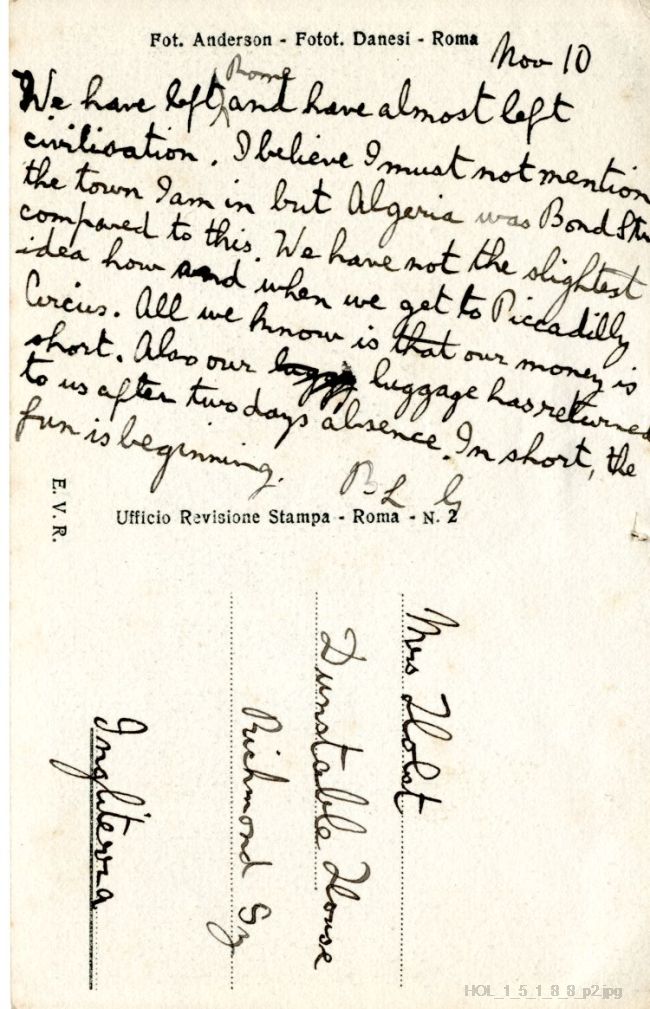 Fot. Anderson - Fotot. Danesi - Roma
Nov 10
We have left Rome and have almost left
civilisation. I believe I must not mention
the town I am in but Algeria was Bond Str
compared to this. We have not the slightest
idea how and when we get to Piccadilly
Circus. All we know is that our money is
short. Also our luggage has returned
to us after two days absence. In short, the
fun is beginning.
E. V. R.
Ufficio Revisione Stampa - Roma - N. 2
Mrs Holst
Dunstable House
Richmond Sy
Inghilterra
HOL_1_5_1_8_8_p2.jpg